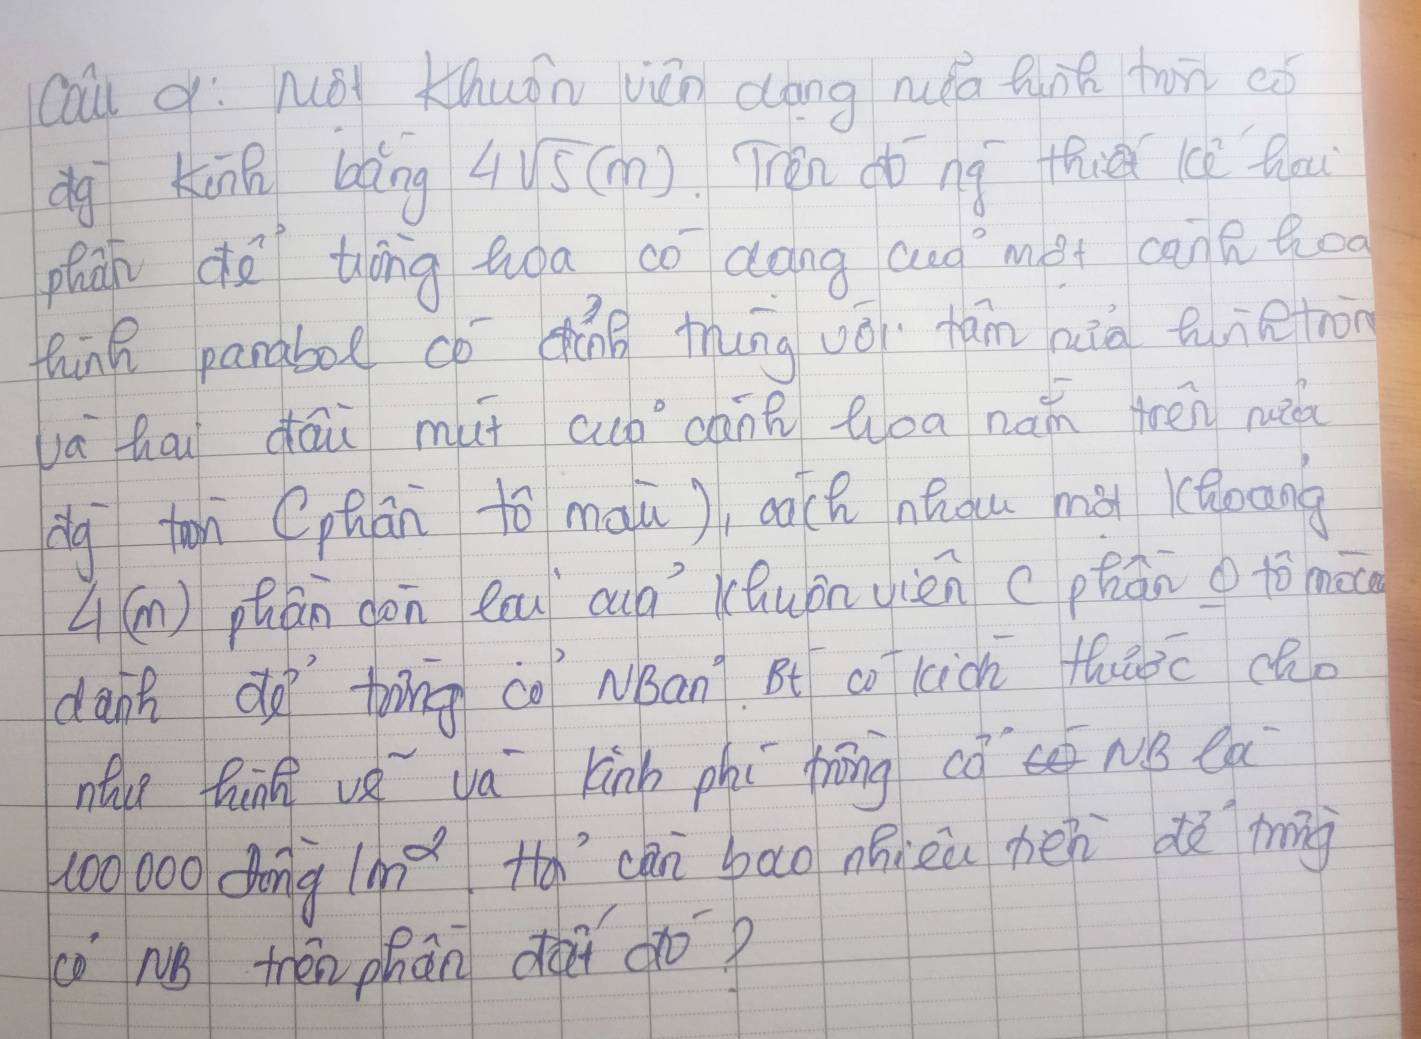 Câu 2: Một khuôn viên dạng nửa hình tròn có
đg kính bằng 4√5(m). Trên đó ng thiết kế hai
phần để trồng hoa có dạng của một cánh hoa
hình parabol có đỉnh trùng với tâm nửa hình tròn
và hai đầu mút của cánh hoa nằm trên nửa
đg tròn (phần tô màu), cách nhau một khoảng
4(m) phần còn lại của khuôn viên (phần o tô màu
dành để trồng cỏ NBản. Bt có kích thước cho
như hình vẽ và kinh phí trồng cỏ NB là
100000 đồng/m². Hỏi cần bao nhiêu tiền để trồng
cỏ NB trên phần đất đó?